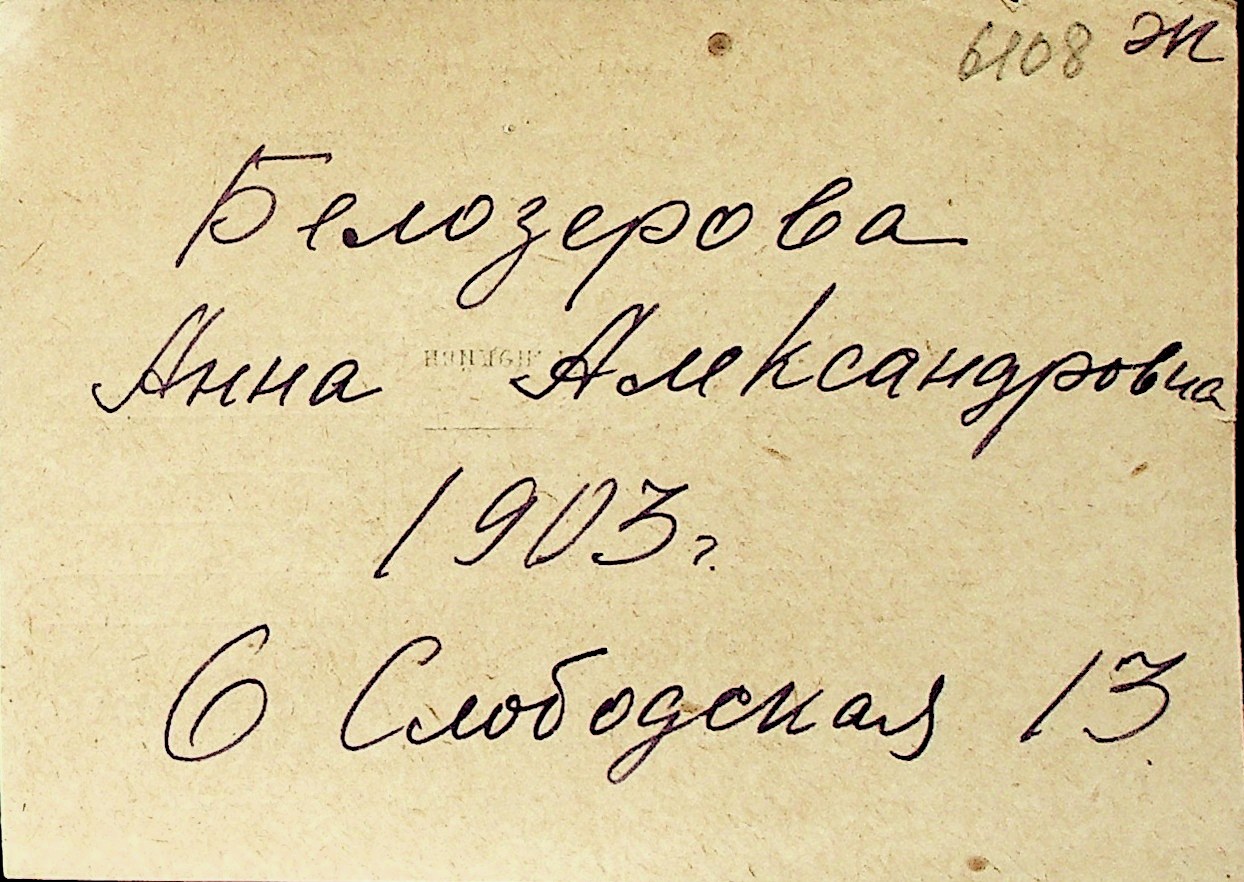 6108 Ж
Белозерова
Анна Александровна
1903 г.
6 Слободская 13